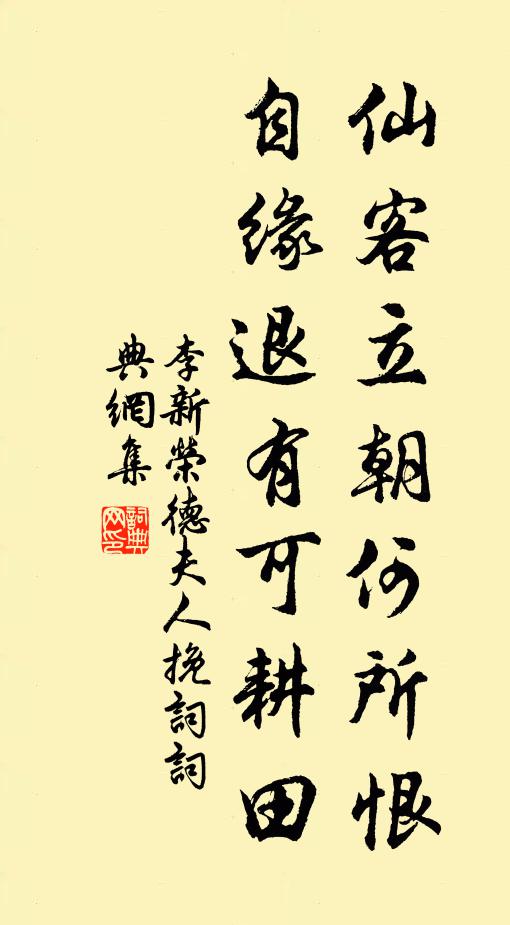 仙客立朝何所恨
自缘退有可耕田
李新榮德夫人挽詞詞
典網集
詞典网印